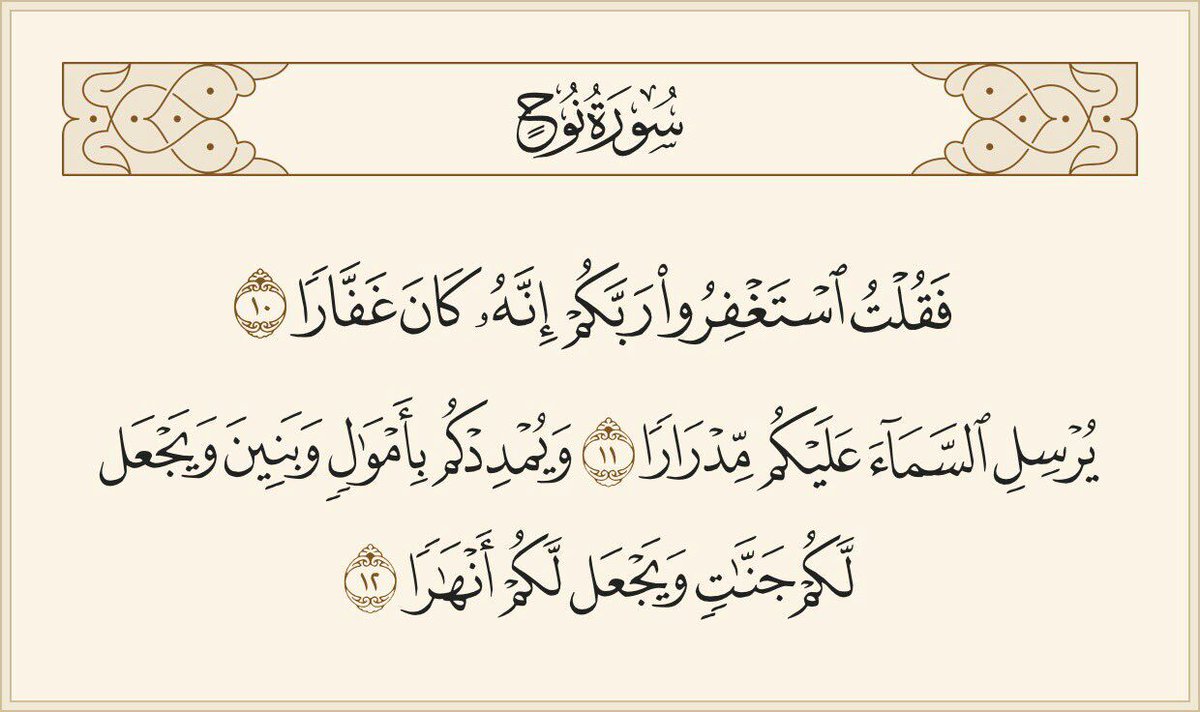 سُورَةُ نُوحٍ
فَقُلْتُ ٱسْتَغْفِرُوا۟ رَبَّكُمْ إِنَّهُۥ كَانَ غَفَّارًا ١٠
يُرْسِلِ ٱلسَّمَآءَ عَلَيْكُم مِّدْرَارًا ١١ وَيُمْدِدْكُم بِأَمْوَٰلٍ وَبَنِينَ وَيَجْعَل
لَّكُمْ جَنَّٰتٍ وَيَجْعَل لَّكُمْ أَنْهَٰرًا ١٢